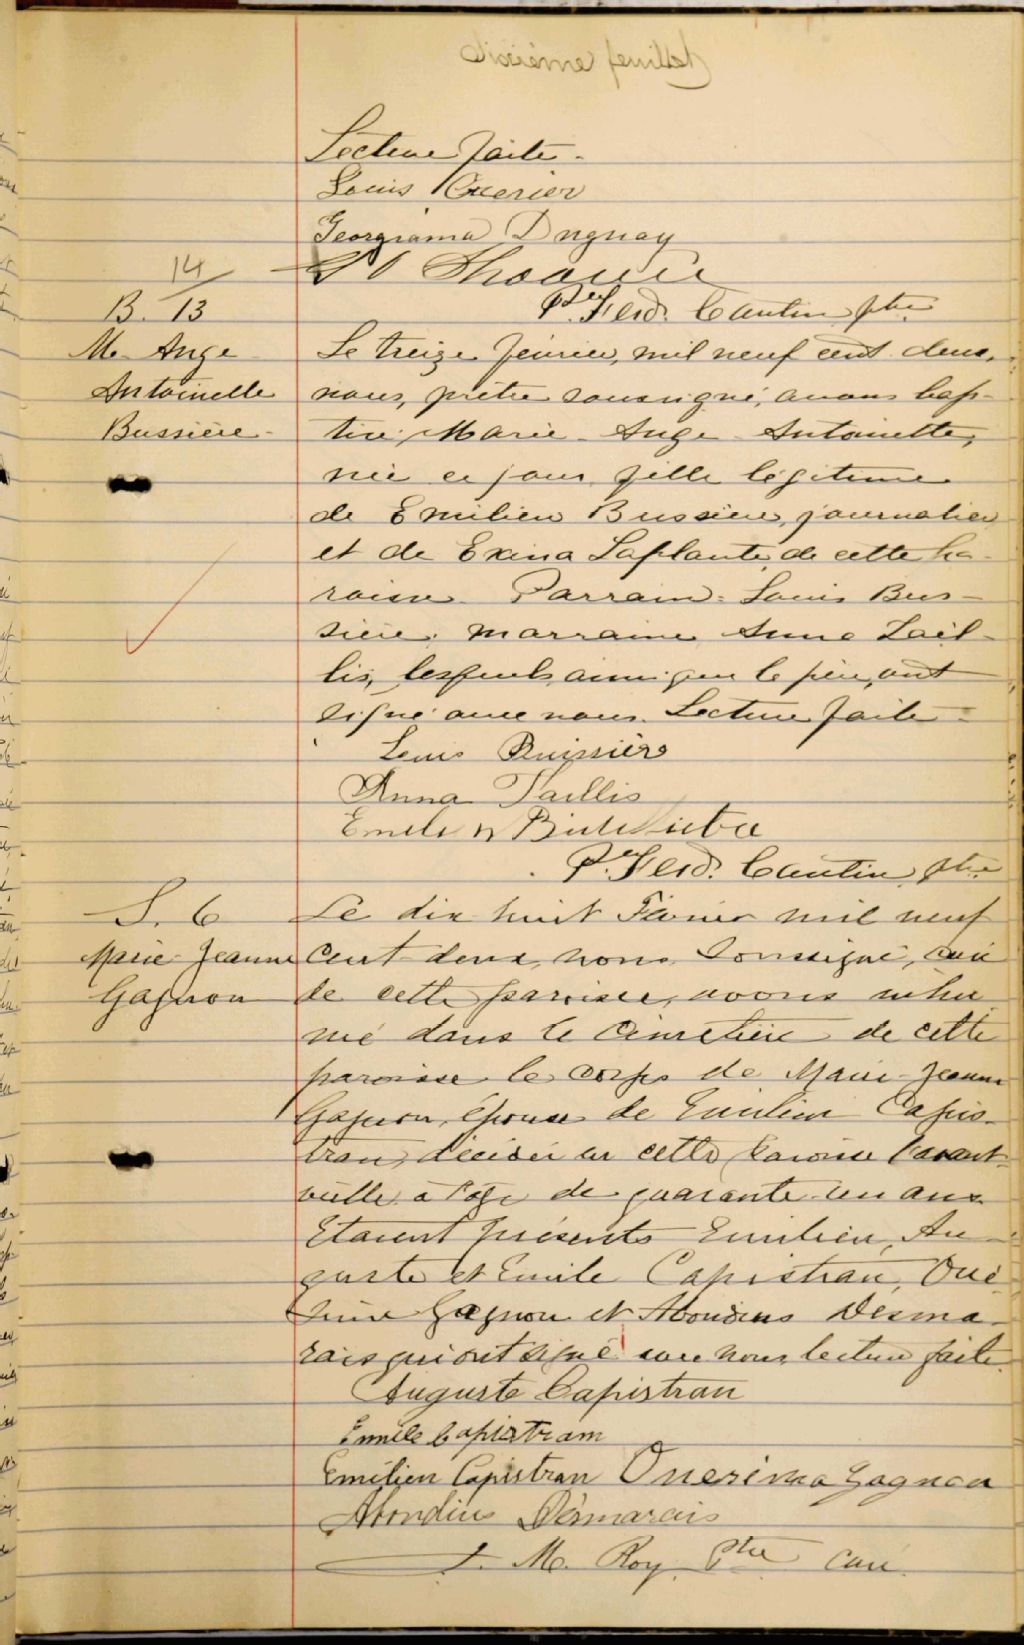 dixième feuillet
Lecture faite.
Louis
Georgiana Duguay
14
B. 13
P. Ferd. Cantin ptre
M. Ange
Antoinette
Bussière
Le treize février, mil neuf cent deux,
nous, prêtre soussigné, avons bap-
tisé Marie-Ange-Antoinette,
née ce jour, fille légitime
de Emilien Bussière, journalier
et de Exina Laplante, de cette pa-
roisse. Parrain: Louis Bus-
sière; marraine Anna Tail-
lis, lesquels ainsi que le père, ont
signé avec nous. Lecture faite.
Louis Buissière
Anna Taillis
P. Ferd. Cantin ptre
S. 6
Marie-Jeanne
Gagnon
Le dix huit Février mil neuf
cent deux, nous soussigné, curé
de cette paroisse, avons inhu
mé dans le cimetière de cette
paroisse le corps de Marie-Jeanne
Gagnon, épouse de Emilien Capis-
tran, décédée en cette paroisse l'avant
veille à l'âge de quarante un ans.
Etaient présents Emilien, Au
guste et Emile Capistran, Oné
sime Gagnon et Abondius Desma-
rais qui ont signé avec nous, lecture faite.
Auguste Capistran
Emile Capistram
Emilien Capistran Onesima Gagnon
Abondius Démarais
J. M. Roy Ptre curé